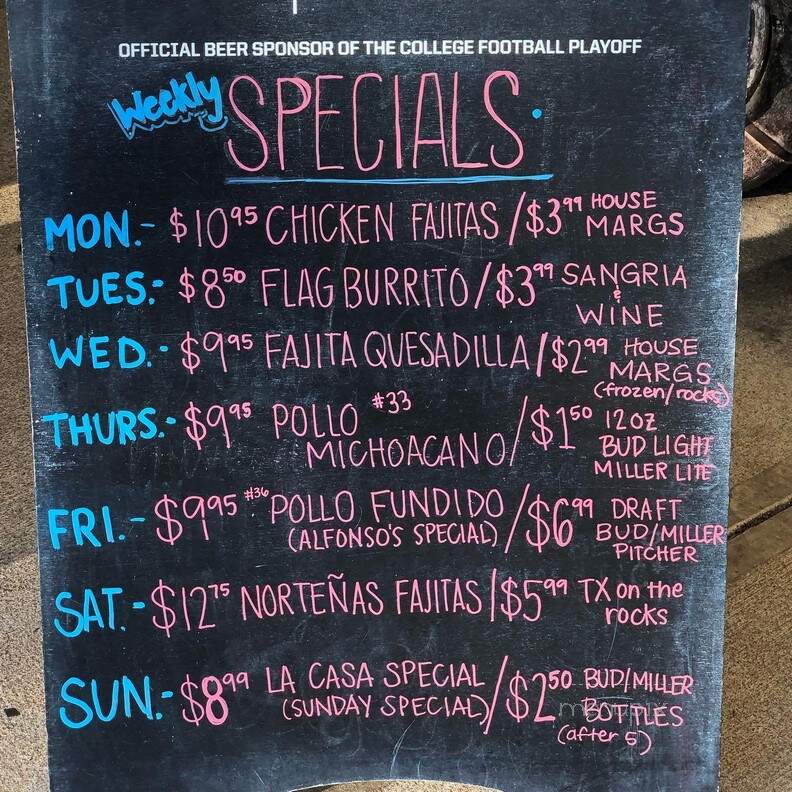 OFFICIAL BEER SPONSOR OF THE COLLEGE FOOTBALL PLAYOFF
Weekly SPECIALS
MON.- $10.95 CHICKEN FAJITAS / $3.99 HOUSE
MARGS
TUES.- $8.50 FLAG BURRITO / $3.99 SANGRIA
&
WINE
WED.- $9.95 FAJITA QUESADILLA / $2.99 HOUSE
MARGS
(frozen/rocks)
THURS.- $9.95 POLLO #33 / $1.50 12oz
MICHOACANO BUD LIGHT
MILLER LITE
FRI.- $9.95 #36 POLLO FUNDIDO / $6.99 DRAFT
(ALFONSO'S SPECIAL) BUD/MILLER
PITCHER
SAT.- $12.75 NORTEÑAS FAJITAS / $5.99 TX on the
rocks
SUN.- $8.99 LA CASA SPECIAL / $2.50 BUD/MILLER
(SUNDAY SPECIAL) BOTTLES
(after 5)